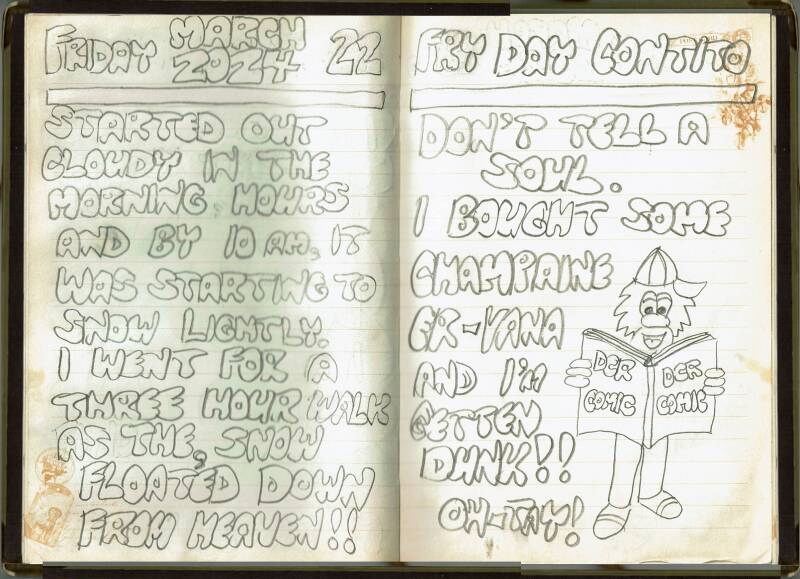 FRIDAY MARCH 2024 22
STARTED OUT
CLOUDY IN THE
MORNING HOURS
AND BY 10 AM, IT
WAS STARTING TO
SNOW LIGHTLY.
I WENT FOR A
THREE HOUR WALK
AS THE, SNOW
FLOATED DOWN
FROM HEAVEN!!
FRY DAY CONTITO
DON'T TELL A
SOUL.
I BOUGHT SOME
CHAMPAINE
ER-VANA
AND I'M
GETTEN
DUNK!!
OH-TAY!
DER COMIC
DER COMIC